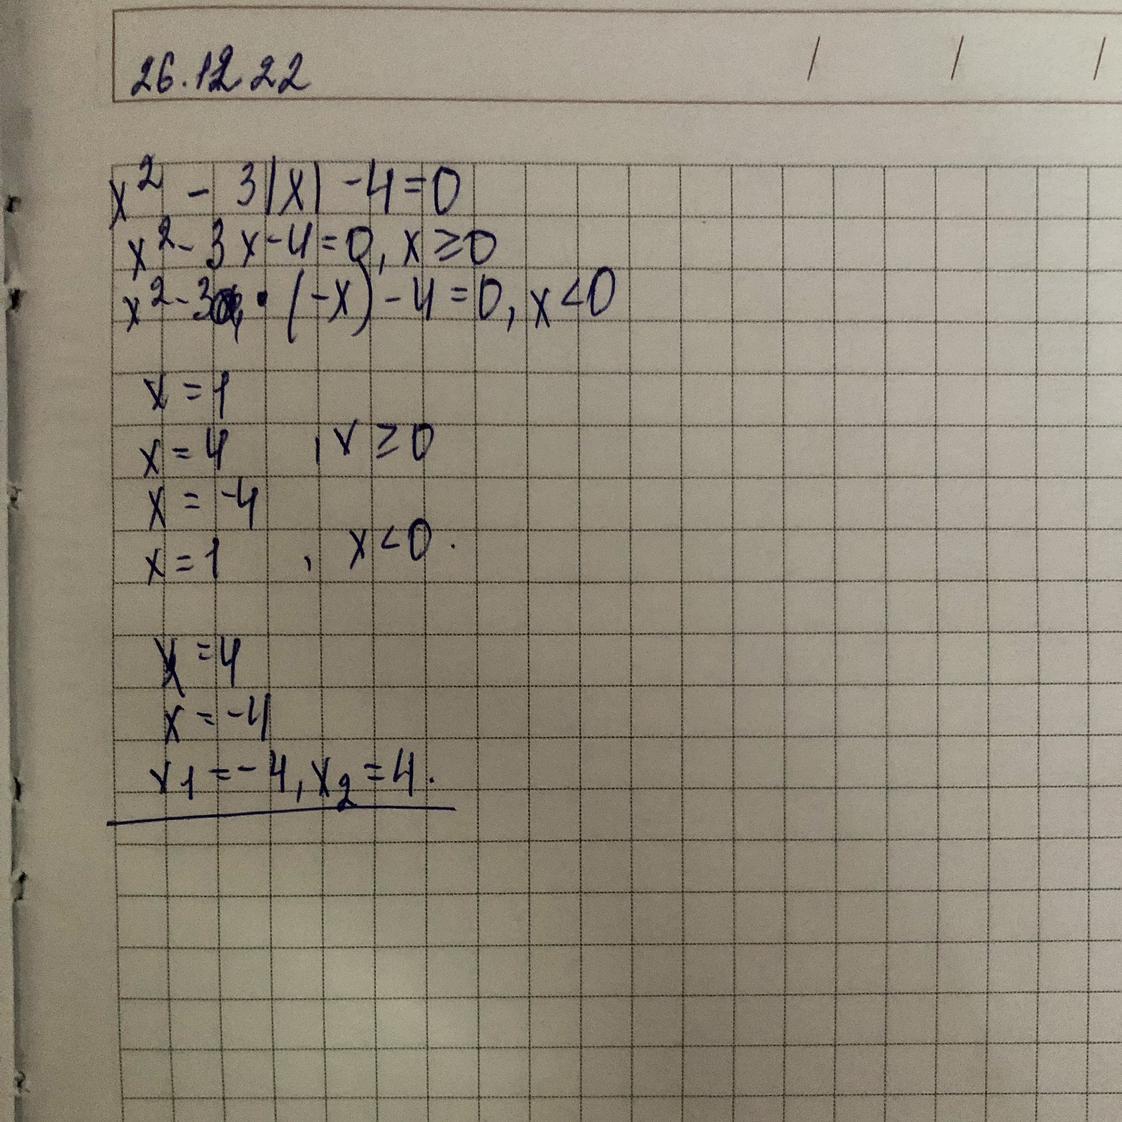 26.12 22
x² - 3|x| -4=0
x²-3x-4=0, x≥0
x²-3 · (-x)-4=0, x<0
x=1
x=4 , x≥0
x=-4
x=1 , x<0.
x=4
x=-4
x1=-4, x2=4.